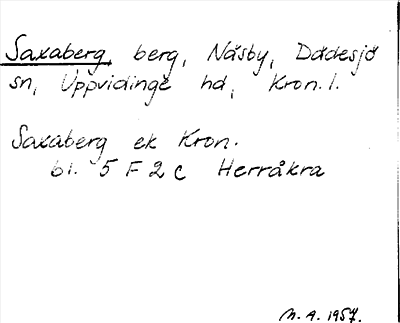 Saxaberg, berg, Näsby, Dädesjö
sn, Uppvidinge hd, Kron. l.
Saxaberg ek Kron.
bl. 5 F 2 c Herråkra
M. A. 1957.